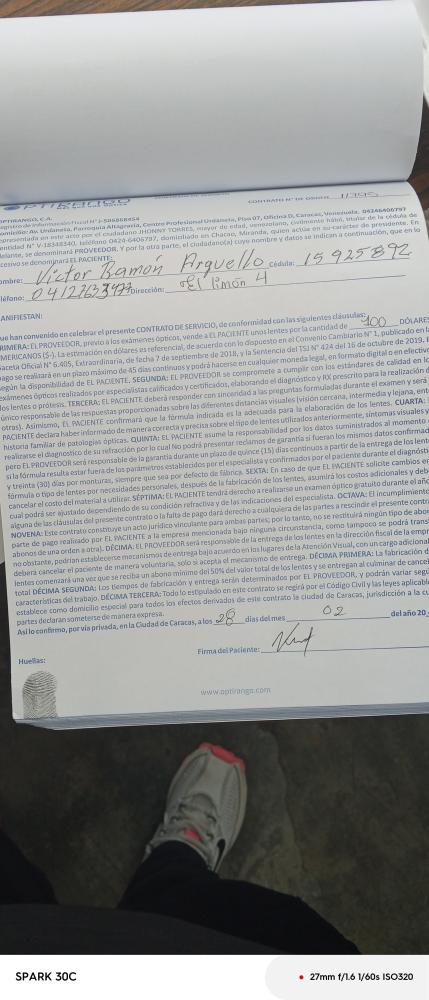 OPTIRANGO
CONTRATO N° DE ORDEN 11795
OPTIRANGO, C.A.
Registro de Información Fiscal N° J-506868454
Domicilio: Av. Urdaneta, Parroquia Altagracia, Centro Profesional Urdaneta, Piso 07, Oficina D, Caracas, Venezuela. 04246406797
representada en este acto por el ciudadano JHONNY TORRES, mayor de edad, venezolano, civilmente hábil, titular de la cédula de
entidad N° V-18348340, teléfono 0424-6406797, domiciliado en Chacao, Miranda, quien actúa en su carácter de presidente. En
delante, se denominará PROVEEDOR. Y por la otra parte, el ciudadano(a) cuyo nombre y datos se indican a continuación, que en lo
cesivo se denominará EL PACIENTE:
ombre: Victor Ramón Arguello Cédula: 15925892
eléfono: Dirección: El limón 4
ANIFIESTAN:
ue han convenido en celebrar el presente CONTRATO DE SERVICIO, de conformidad con las siguientes cláusulas:
RIMERA: EL PROVEEDOR, previo a los exámenes ópticos, vende a EL PACIENTE unos lentes por la cantidad de 100 DÓLARES
MERICANOS ($-). La estimación en dólares es referencial, de acuerdo con lo dispuesto en el Convenio Cambiario N° 1, publicado en la
aceta Oficial N° 6.405, Extraordinaria, de fecha 7 de septiembre de 2018, y la Sentencia del TSJ N° 424 del 16 de octubre de 2019. E
pago se realizará en un plazo máximo de 45 días continuos y podrá hacerse en cualquier moneda legal, en formato digital o en efectivo
según la disponibilidad de EL PACIENTE. SEGUNDA: EL PROVEEDOR se compromete a cumplir con los estándares de calidad en lo
exámenes ópticos realizados por especialistas calificados y certificados, elaborando el diagnóstico y RX prescrito para la realización d
los lentes o prótesis. TERCERA: EL PACIENTE deberá responder con sinceridad a las preguntas formuladas durante el examen y será
único responsable de las respuestas proporcionadas sobre las diferentes distancias visuales (visión cercana, intermedia y lejana, ent
otras). Asimismo, EL PACIENTE confirmará que la fórmula indicada es la adecuada para la elaboración de los lentes. CUARTA:
PACIENTE declara haber informado de manera correcta y precisa sobre el tipo de lentes utilizados anteriormente, síntomas visuales y
historia familiar de patologías ópticas. QUINTA: EL PACIENTE asume la responsabilidad por los datos suministrados al momento
realizarse el diagnostico de su refracción por lo cual No podrá presentar reclamos de garantía si fueran los mismos datos confirmad
pero EL PROVEEDOR será responsable de la garantía durante un plazo de quince (15) días continuos a partir de la entrega de los lent
si la fórmula resulta estar fuera de los parámetros establecidos por el especialista y confirmados por el paciente durante el diagnósti
y treinta (30) días por monturas, siempre que sea por defecto de fábrica. SEXTA: En caso de que EL PACIENTE solicite cambios e
fórmula o tipo de lentes por necesidades personales, después de la fabricación de los lentes, asumirá los costos adicionales y deb
cancelar el costo del material a utilizar. SÉPTIMA: EL PACIENTE tendrá derecho a realizarse un examen óptico gratuito durante el año
cual podrá ser ajustado dependiendo de su condición refractiva y de las indicaciones del especialista. OCTAVA: El incumplimiento
alguna de las cláusulas del presente contrato o la falta de pago dará derecho a cualquiera de las partes a rescindir el presente contr
NOVENA: Este contrato constituye un acto jurídico vinculante para ambas partes; por lo tanto, no se restituirá ningún tipo de abon
parte de pago realizado por EL PACIENTE a la empresa mencionada bajo ninguna circunstancia, como tampoco se podrá trans
abonos de una orden a otra). DÉCIMA: EL PROVEEDOR será responsable de la entrega de los lentes en la dirección fiscal de la empr
no obstante, podrían establecerse mecanismos de entrega bajo acuerdo en los lugares de la Atención Visual, con un cargo adicional
deberá cancelar el paciente de manera voluntario, solo si acepta el mecanismo de entrega. DÉCIMA PRIMERA: La fabricación d
lentes comenzará una vez que se reciba un abono mínimo del 50% del valor total de los lentes y se entregan al culminar de cancelar
total DÉCIMA SEGUNDA: Los tiempos de fabricación y entrega serán determinados por EL PROVEEDOR, y podrán variar segú
características del trabajo. DÉCIMA TERCERA: Todo lo estipulado en este contrato se regirá por el Código Civil y las leyes aplicable
establece como domicilio especial para todos los efectos derivados de este contrato la ciudad de Caracas, jurisdicción a la cu
partes declaran someterse de manera expresa.
Así lo confirmo, por vía privada, en la Ciudad de Caracas, a los 28 días del mes 02 del año 20
Firma del Paciente:
Huellas:
www.optirango.com
SPARK 30C
27mm f/1.6 1/60s ISO320